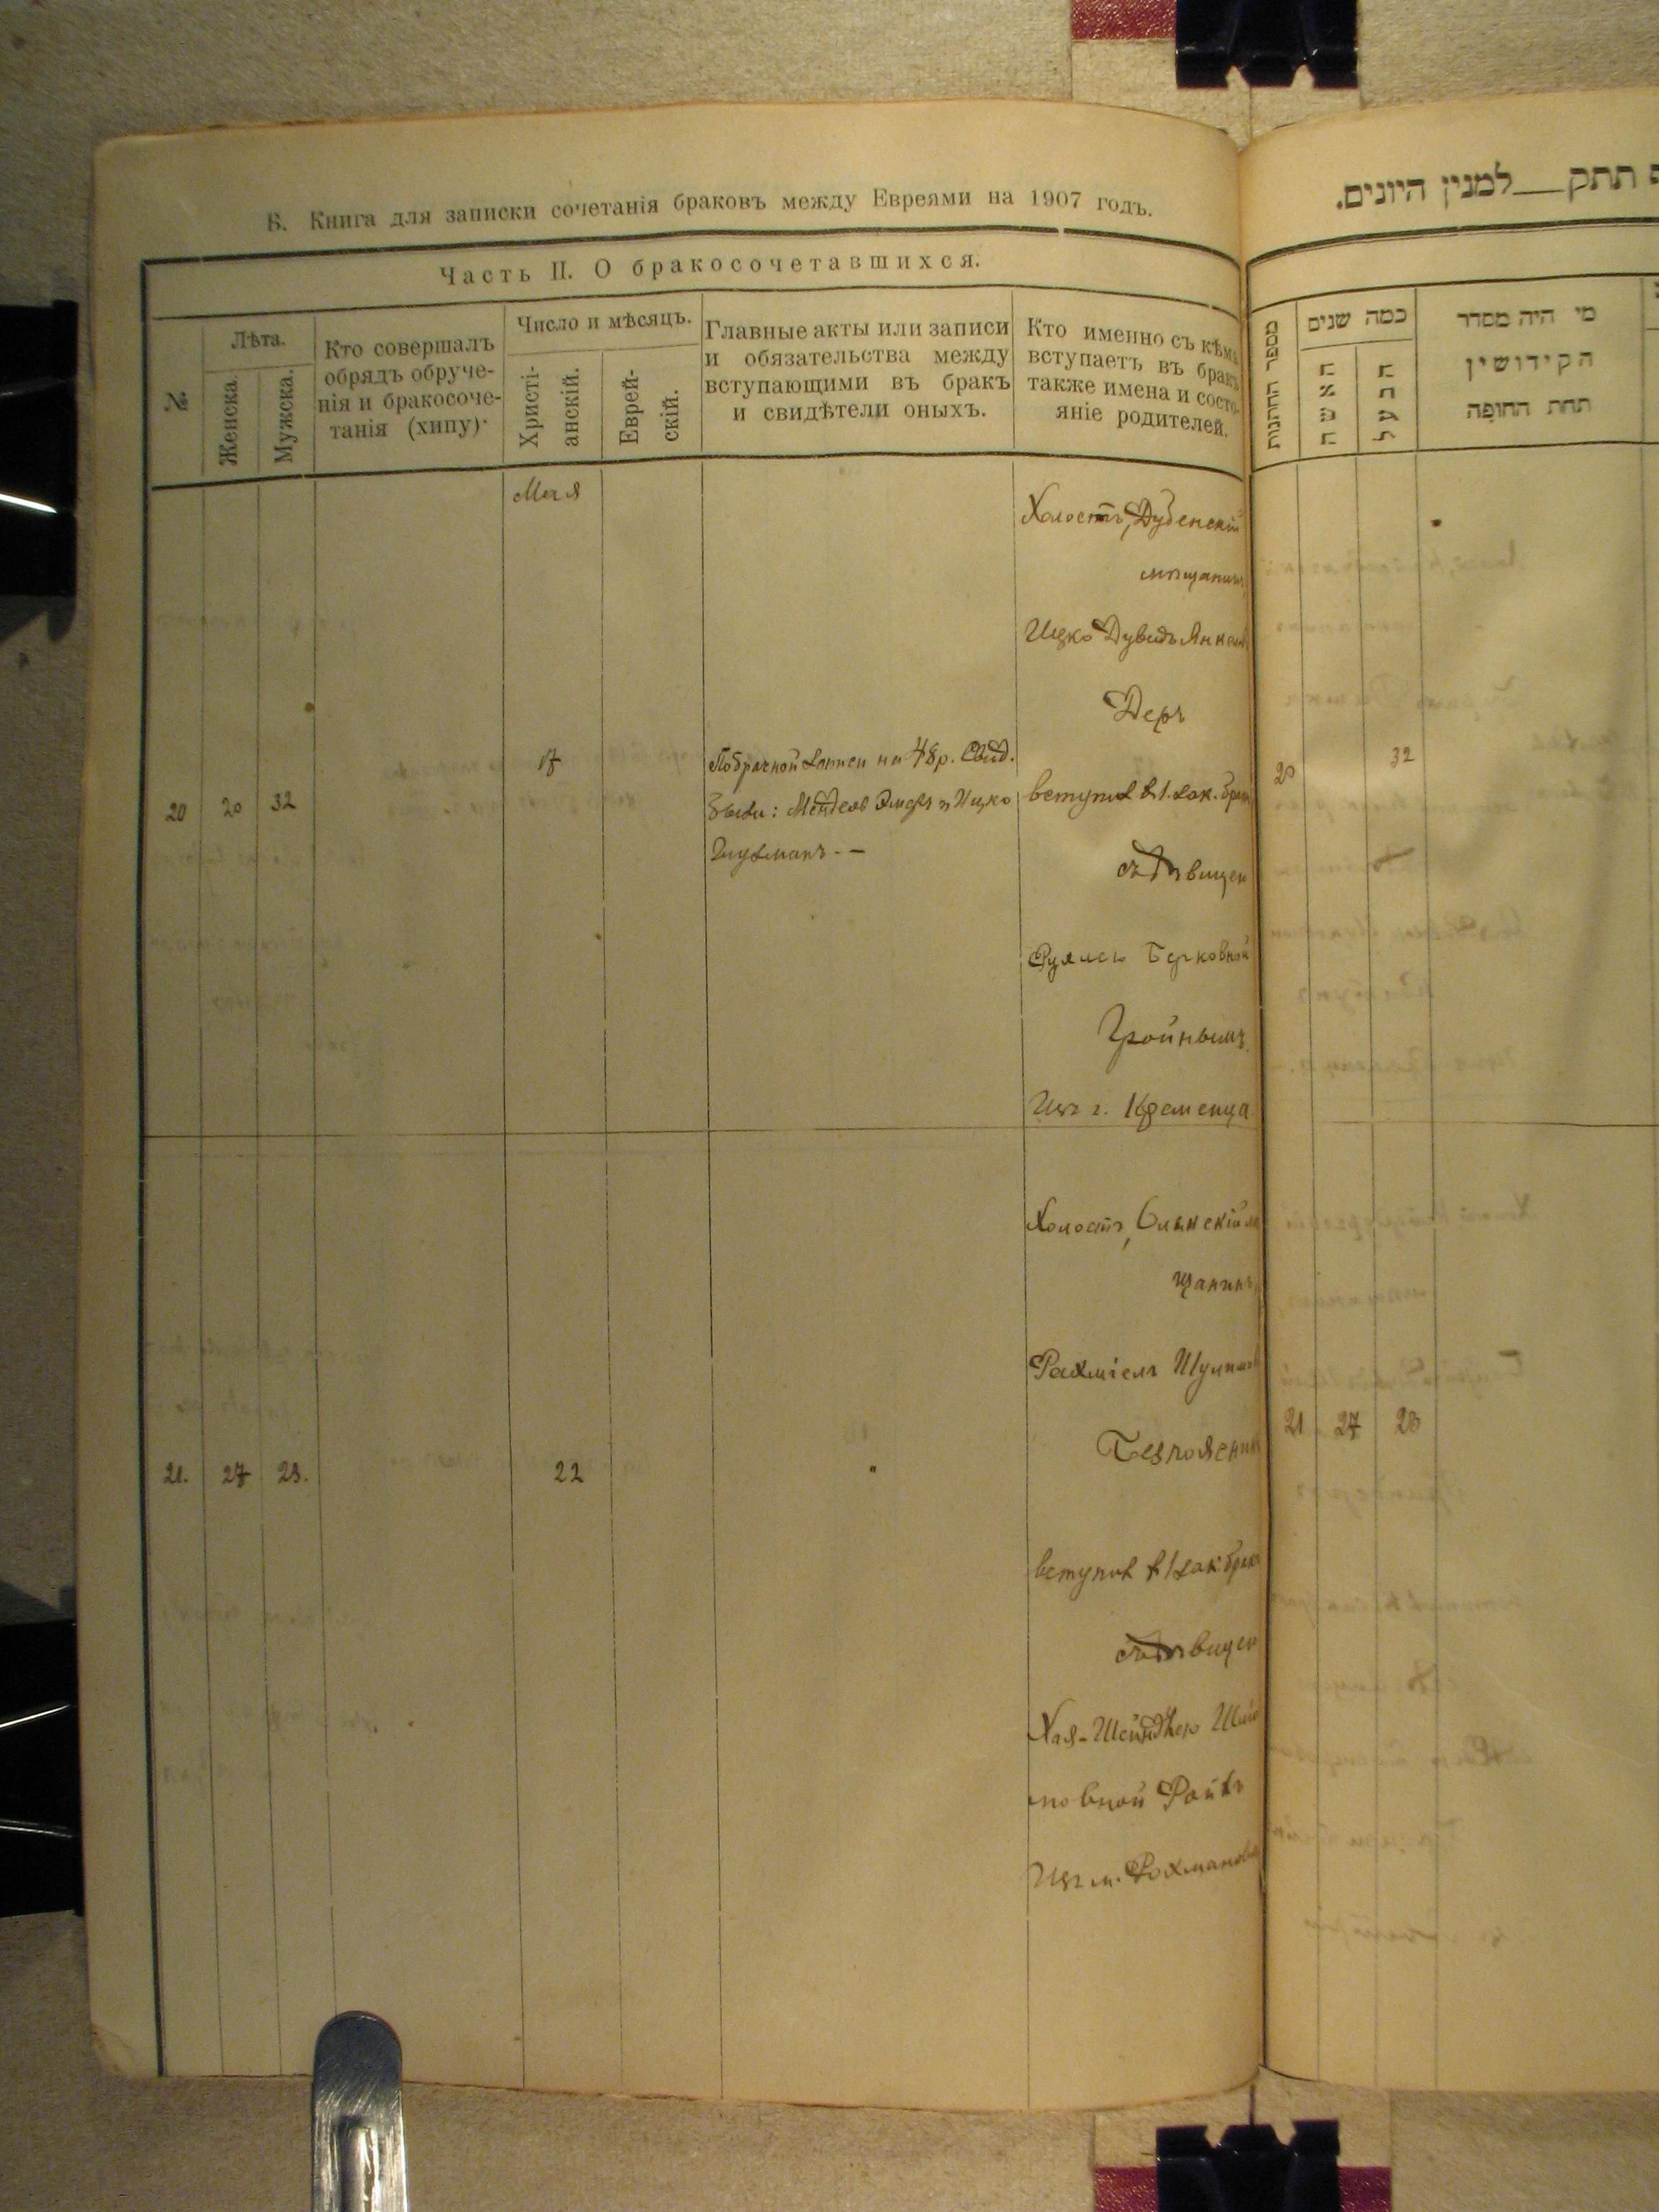 В. Книга для записки сочетанія браковъ между Евреями на 1907 годъ.
Часть II. О бракосочетавшихся.
№.
Лѣта.
Женска.
Мужска.
Кто совершалъ
обрядъ обруче-
нія и бракосоче-
танія (хипу).
Число и мѣсяцъ.
Христі-
анскій.
Еврей-
скій.
Главные акты или записи
и обязательства между
вступающими въ бракъ
и свидѣтели оныхъ.
Кто именно съ кѣмъ
вступаетъ въ бракъ
также имена и состо-
яніе родителей.
Мая
20 20 32
17
По брачной записи на 48 р. Свид.
были: Мендель и Ицко
Холостъ, Дубенскій
мѣщанинъ
Ицко Дувидъ Янкел
Деръ
вступил в 1. зак. бракъ
съ дѣвицею
Берковной
Тройнымъ
Изъ г. Кременца
21. 27 23.
22
"
Холостъ,
щанинъ
Рахміель
вступил в 1 зак. бракъ
съ дѣвицею
Хая-Шейндлею
мовной Ройтъ
Изъ м. Рохманова
תתק__למנין היונים.
מספר החתונות
כמה שנים
האשה
הבעל
מי היה מסדר
הקידושין
תחת החופה
20 32
21 27 23